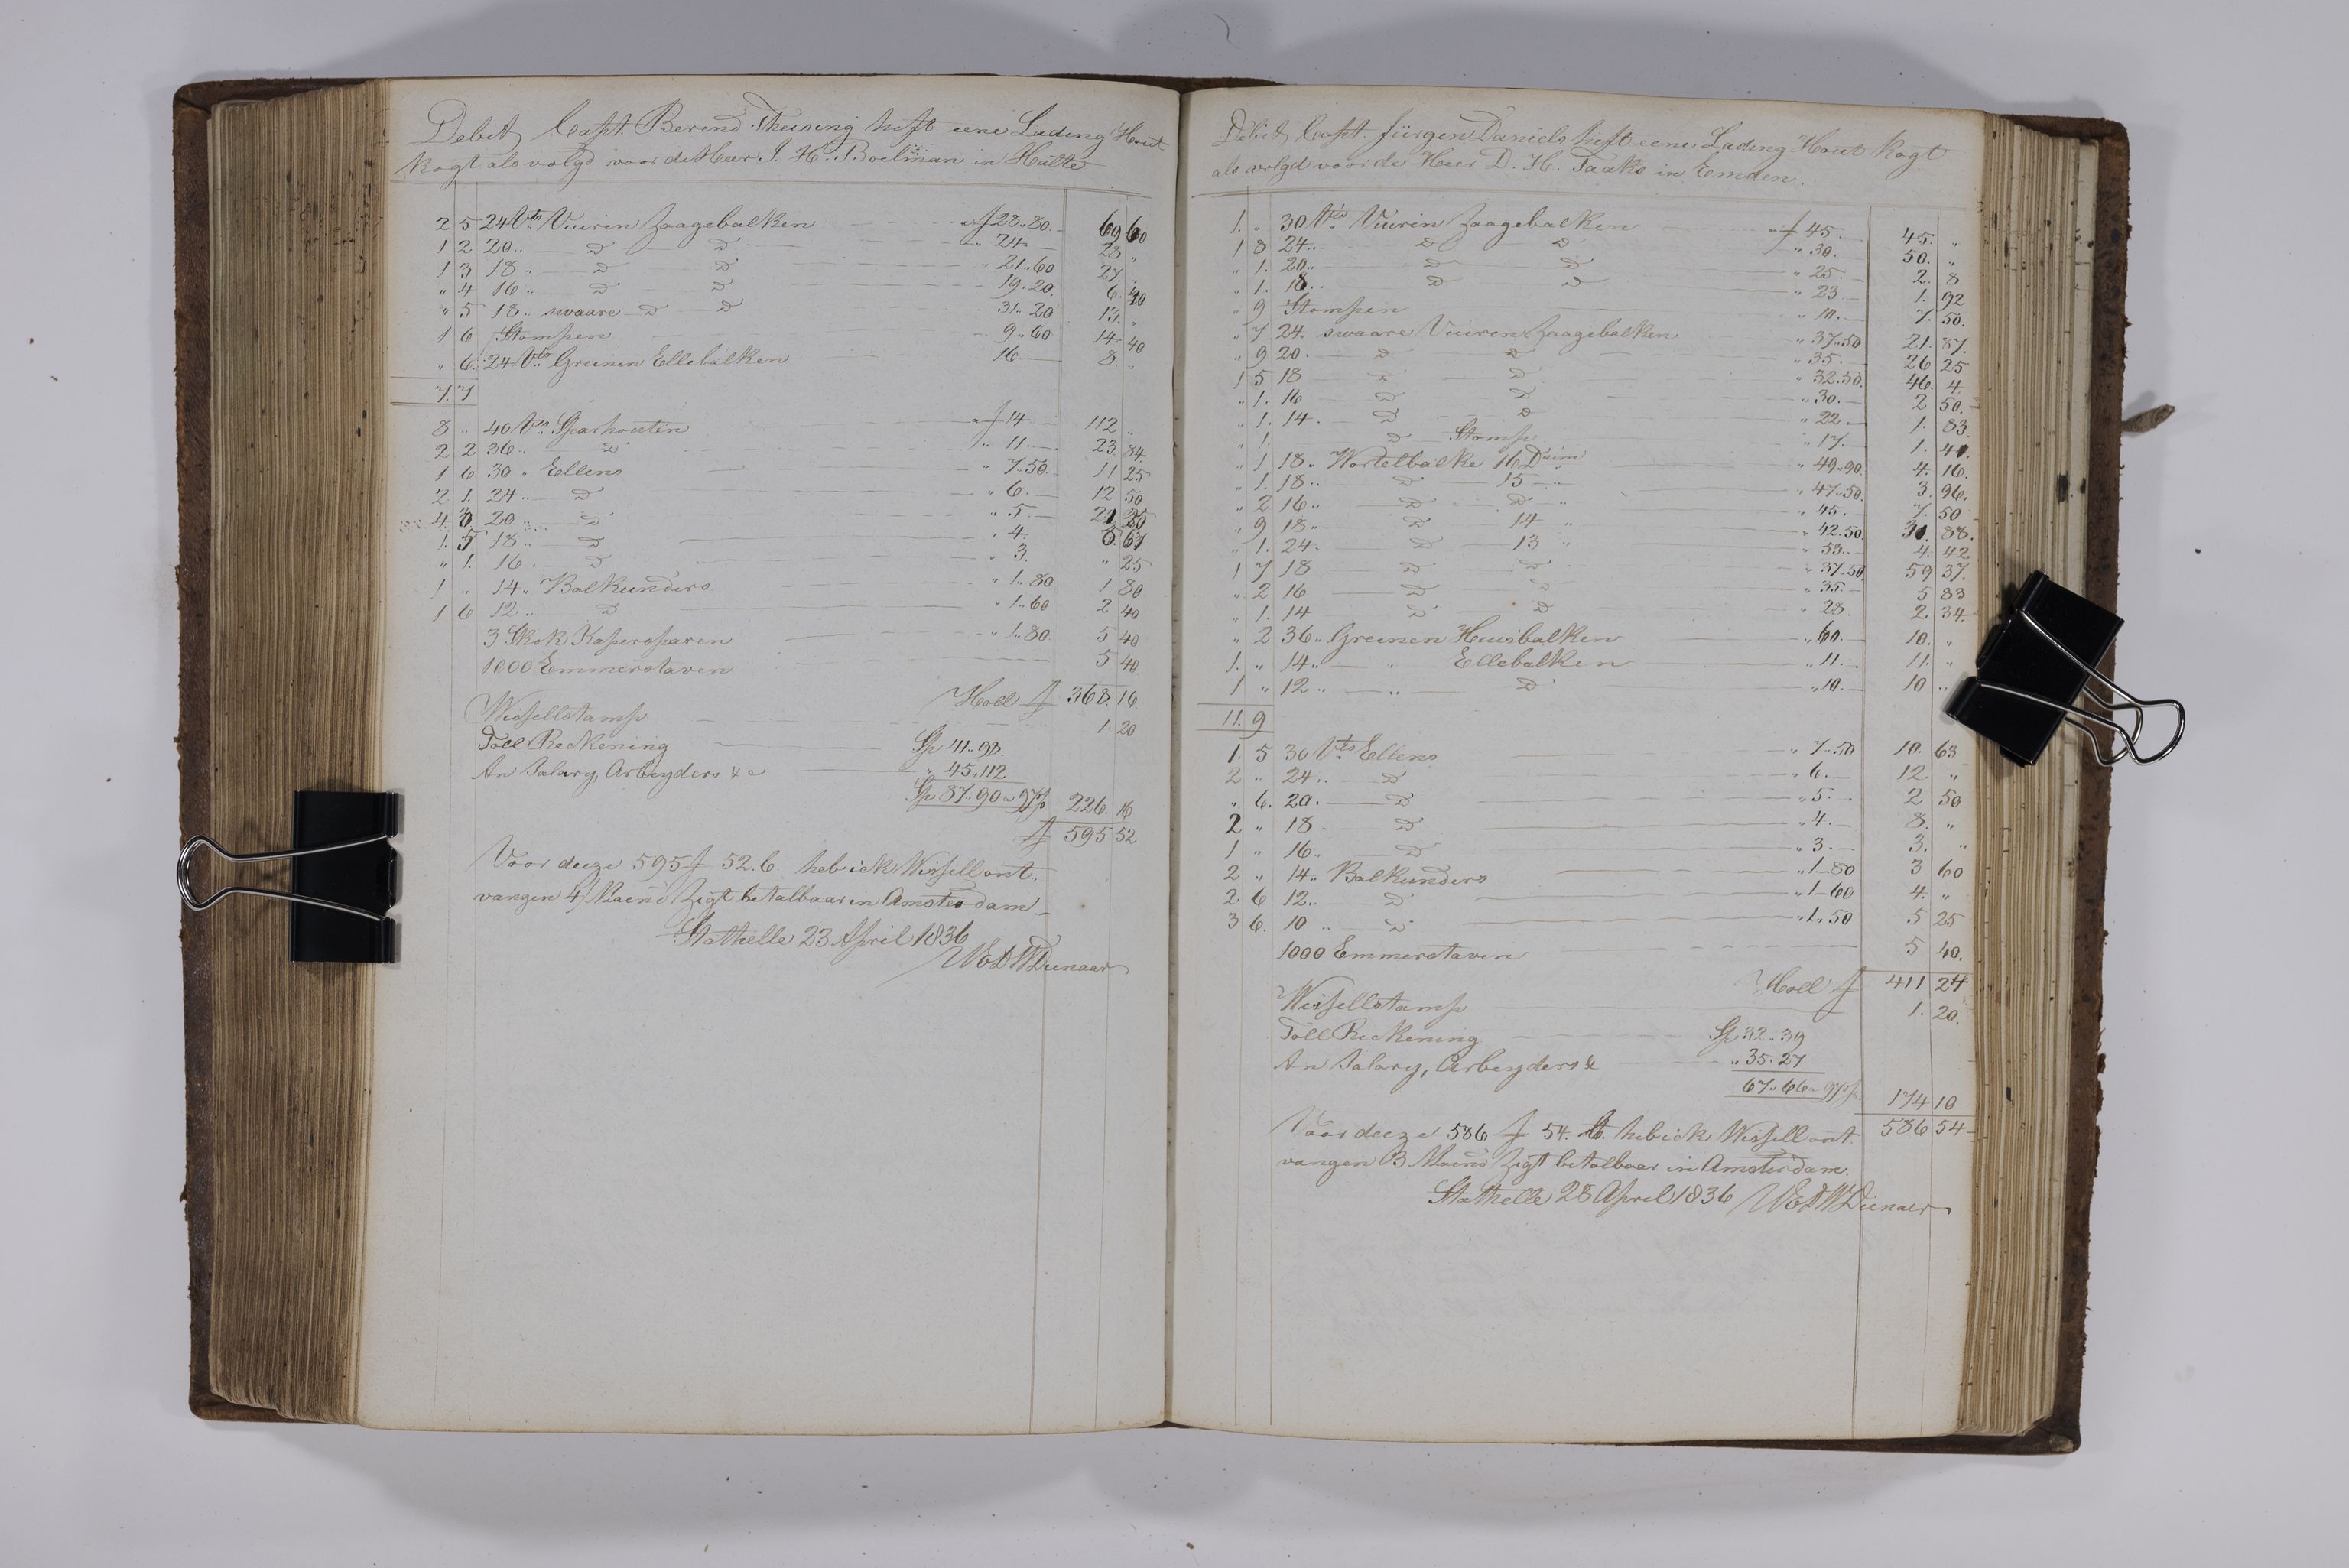 Debet Capt. Berend Theising heft eene Lading Hout
kogt als volgd voor de Heer J. H. Boelman in Hulte
2 5 24 Vts Vuuren Zaagebalken a f 28.. 80. 69 60
1 2 20 .. D D " 24. 28 "
1 3 18 .. D D " 21.. 60 27. "
" 4 16 .. D D 19. 20. 6. 40
" 5 18 .. swaare D D 31.. 20 13. "
1 6 Stompen 9.. 60 14. 40
" 6. 24 Vts Greinen Ellebalken 16. 8. "
7. 7
8 .. 40 Vts Sparhouten a f 14 112 ..
2 2 36 .. D " 11. 23. 84.
1 6 30 " Ellens " 7.. 50. 11 25
2 1. 24 .. D " 6. 12 50
4 3 20 .. D " 5. 21 25
1. 5 18 .. D " 4. 5. 67
" 1. 16. D " 3. " 25
1 " 14 " Balkunders " 1.. 80 1 80
1 6 12 .. D " 1.. 60 2 40
3 Skok Kapersparen " 1.. 80. 5 40
1000 Emmerstaven 5 40
Holl f 368. 16
Wissellstamp 1. 20
Toll Reckening Sp 41.. 98.
An Salary, Arbeyders & c " 45. 112
Sp 87.. 90 a 97 226. 16
f 595 52
Voor deeze 595 f 52. C heb ick Wissell ont.
vangen 4/ Maend Zigt betalbaar in Amsterdam
Stathelle 23 April 1836
Dienaar
Debet Capt. Jürgen Daniels heft eene Lading Hout kogt
als volgd voor de Heer D. H. Taaks in Emden.
1. " 30 Vts Vuuren Zaagebalken a f 45. 45. "
1 8 24 .. D D " 30. 50. "
" 1. 20 .. D D " 25 2. 8
" 1. 18 .. D D " 23 1. 92
" 9 Stompen " 10. 7. 50.
" 7 24. swaare Vuuren Zaagebalken " 37.. 50 21. 87.
" 9 20. D D " 35. 26 25
1 5 18 D D " 32. 50. 46. 4.
" 1. 16 D D " 30. 2 50.
" 1. 14. D D " 22 1. 83.
" 1. D Stomp " 17. 1. 41.
" 1 18. Wortelbalke 16 Duim " 49. 90. 4. 16.
" 1. 18 .. D 15 " " 47. 50. 3. 96.
" 2 16 " D D " " 45. 7. 50
" 9 18 " D 14 " " 42. 50. 31. 88.
" 1. 24. D 13 " " 53. 4. 42
1 7 18 D D " 37. 50 59 37.
" 2 16 D D " 35. 5 83
" 1. 14 D D " 28. 2. 34.
" 2 36 " Greinen Huisbalken " 60. 10. "
1. " 14 " " Ellebalken " 11. 11. "
1 " 12 .. " D " 10. 10 ..
11. 9
1. 5 30 Vts Ellens " 7. 50 10. 63
2 " 24 .. D " 6. 12 "
" 6. 20. D " 5. 2 50
2 " 18 D " 4. 8. "
1 " 16. D " 3. 3. "
2 " 14 " Balkunders " 1. 80 3 60
2 6 12. D " 1. 60 4. "
3 6. 10 .. D " 1. 50 5 25
1000 Emmerstaven 5 40.
Holl f 411 24
Wissellstamp 1. 20.
Toll Reckening Sp 32. 39
An Salary, Arbeyders & " 35. 27
67.. 66 a 97 174 10
Voor deeze 586 f 54. C. heb ick Wissell ont. 586 54
vangen 3 Maend Zigt betalbaar in Amsterdam.
Stathelle 28 April 1836 Dienaer